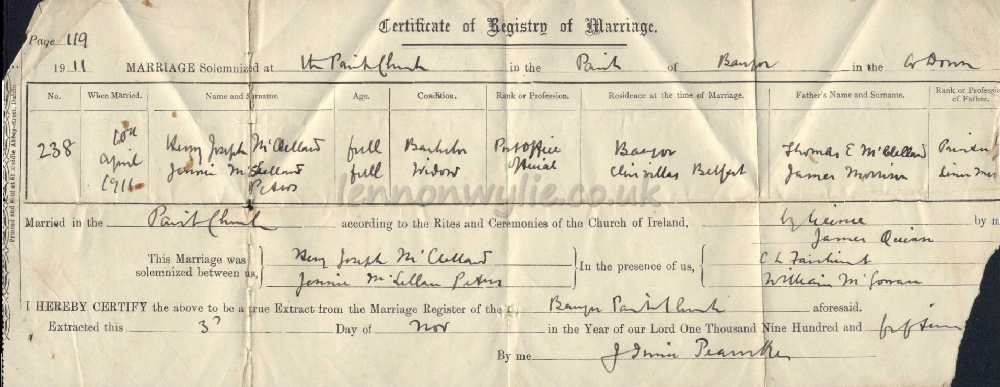 Certificate of Registry of Marriage.
Page 119
1911 MARRIAGE Solemnized at the Parish Church in the Parish of Bangor in the Co Down
No. When Married. Name and Surname. Age. Condition. Rank or Profession. Residence at the time of Marriage. Father's Name and Surname. Rank or Profession of Father.
238 April 1911 Henry Joseph McClelland full Bachelor Post Office Official Bangor Thomas E McClelland
Jennie McLellan Peters full Widow Belfast James Morrison
lennonwylie.co.uk
Married in the Parish Church according to the Rites and Ceremonies of the Church of Ireland, by Licence by m
James Quinn
This Marriage was solemnized between us, Henry Joseph McClelland In the presence of us,
Jennie McLellan Peters William McGowan
I HEREBY CERTIFY the above to be a true Extract from the Marriage Register of the Bangor Parish Church aforesaid.
Extracted this 3 Day of Nov in the Year of our Lord One Thousand Nine Hundred and fifteen
By me